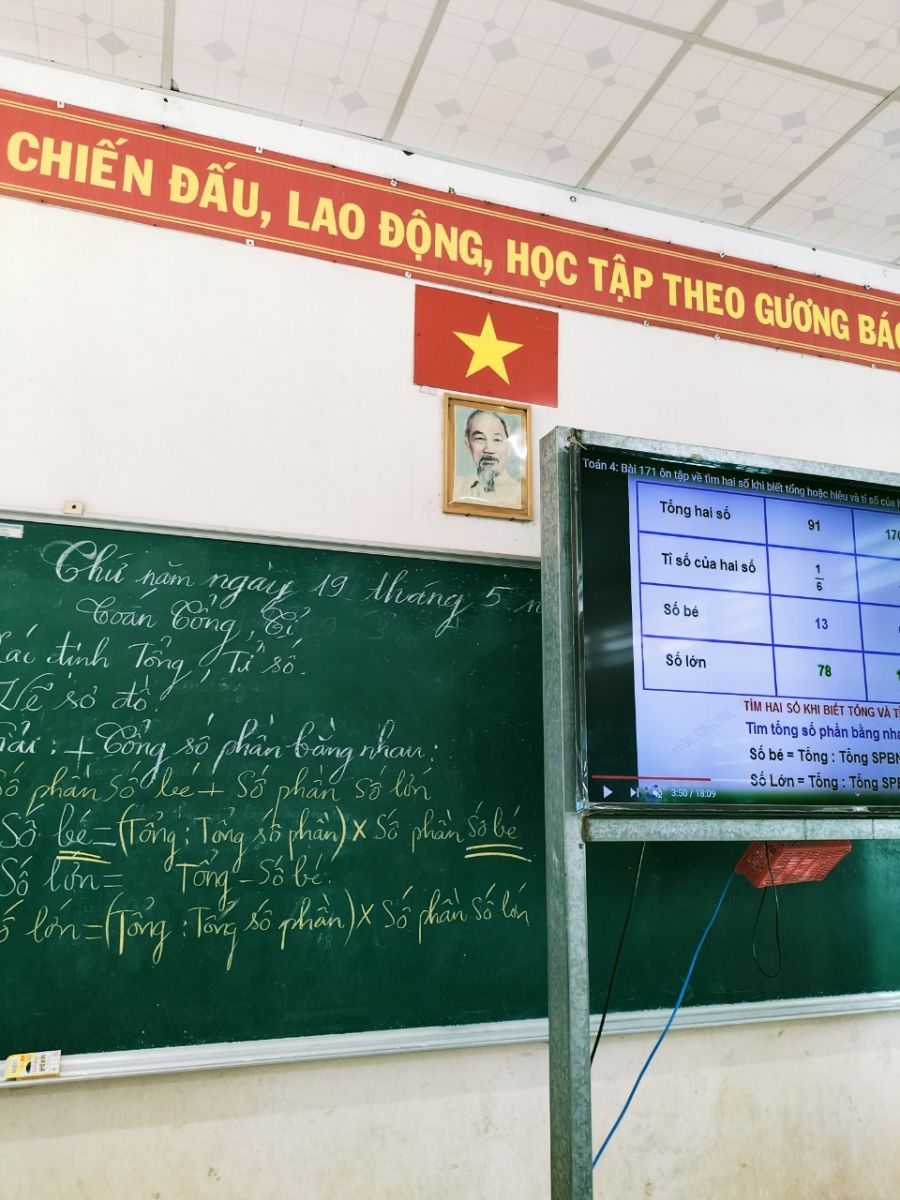 CHIẾN ĐẤU, LAO ĐỘNG, HỌC TẬP THEO GƯƠNG BÁC
Thứ năm ngày 19 tháng 5 n
Toán Tổng, Tỉ
Xác định Tổng, Tỉ số.
Vẽ sơ đồ.
Giải: + Tổng số phần bằng nhau:
Số phần số bé + Số phần số lớn
Số bé = (Tổng : Tổng số phần) x Số phần Số bé
Số lớn = Tổng - Số bé.
Số lớn = (Tổng : Tổng số phần) x Số phần Số lớn
Toán 4: Bài 171 ôn tập về tìm hai số khi biết tổng hoặc hiệu và tỉ số của h
Tổng hai số 91 170
Tỉ số của hai số 1/6
Số bé 13
Số lớn 78 1
TÌM HAI SỐ KHI BIẾT TỔNG VÀ T
Tìm tổng số phần bằng nha
Số bé = Tổng : Tổng SPBN
Số Lớn = Tổng : Tổng SPB
HỌC ONLINE
3:50 / 18:09